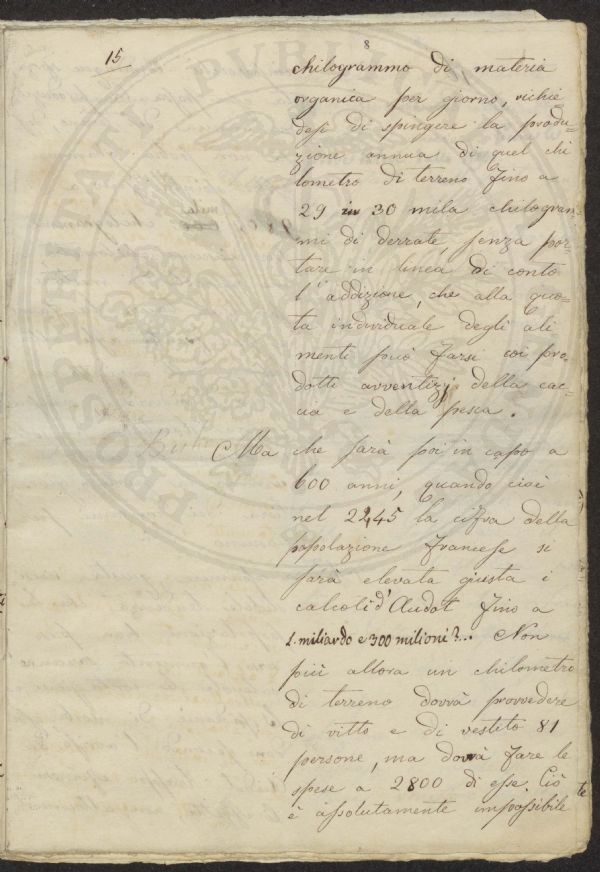 15
8
chilogrammo di materia
organica per giorno, richie-
desi di spingere la produ-
zione annua di quel chi
lometro di terreno fino a
29 in 30 mila chilogram-
mi di derrate, senza por-
tare in linea di conto
l'addizione, che alla quo-
ta individuale degli ali
menti può farsi coi pro-
dotti avventizj della cac-
cia e della pesca.
Ma che sarà poi in capo a
600 anni, quando cioè
nel 2245 la cifra della
popolazione francese si
sarà elevata giusta i
calcoli d'Audot fino a
1. miliardo e 300 milioni?... Non
più allora un chilometro
di terreno dovrà provvedere
di vitto e di vestito 81
persone, ma dovrà fare le
spese a 2800 di esse. Ciò
è assolutamente impossibile